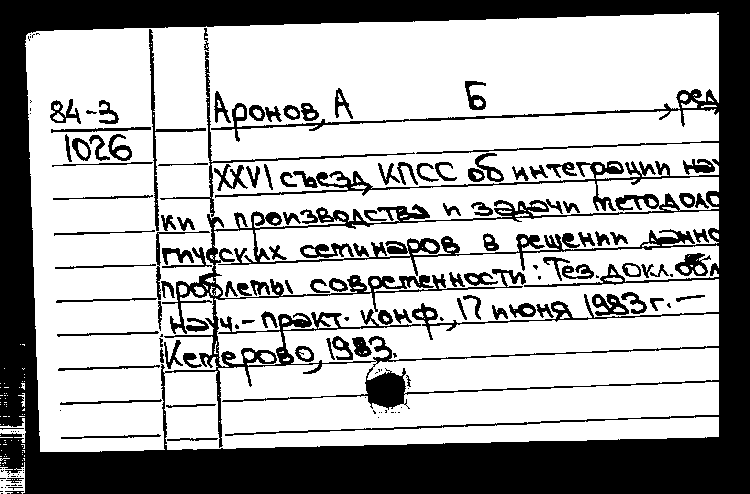 84-3
1026
Аронов, А Б , ред
XXVI съезд КПСС об интеграции нау
ки и производства и задачи методоло
гических семинаров в решении данно
проблемы современности: Тез. докл. обл
науч.-практ. конф., 17 июня 1983 г. —
Кемерово, 1983.